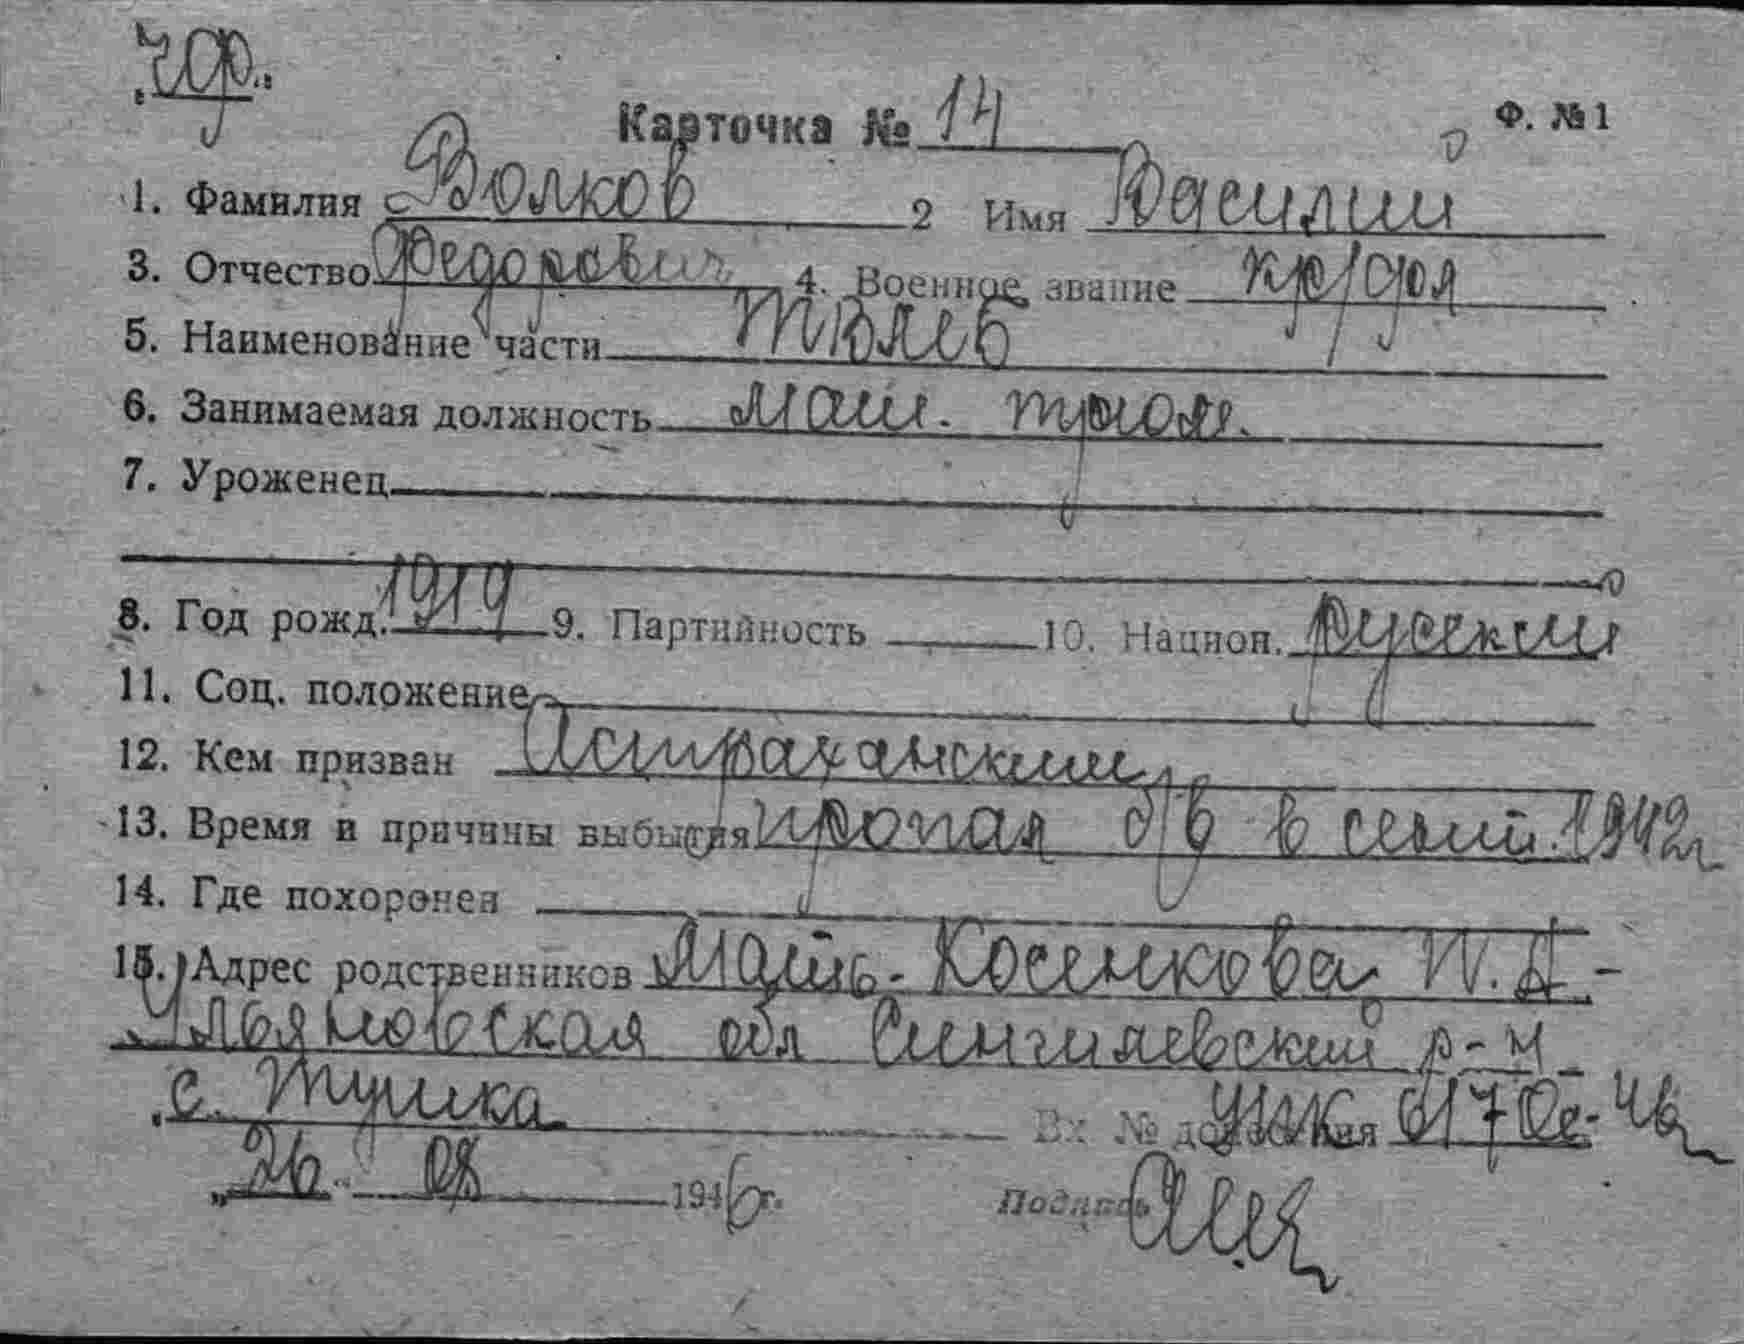 Карточка № 14 Ф. № 1
1. Фамилия Волков 2 Имя Василий
3. Отчество Федорович 4. Военное звание кр/фл
5. Наименование части
6. Занимаемая должность маш. трюм.
7. Уроженец
8. Год рожд. 1919 9. Партийность 10. Национ. русский
11. Соц. положение
12. Кем призван Астраханским
13. Время и причины выбытия пропал б/в в сент. 1942г
14. Где похоронен
15. Адрес родственников Мать - Косенкова
Ульяновская обл Сингилевский р-н
с. Тушка Вх № донесения
„26" 08 1946 г. Подпись